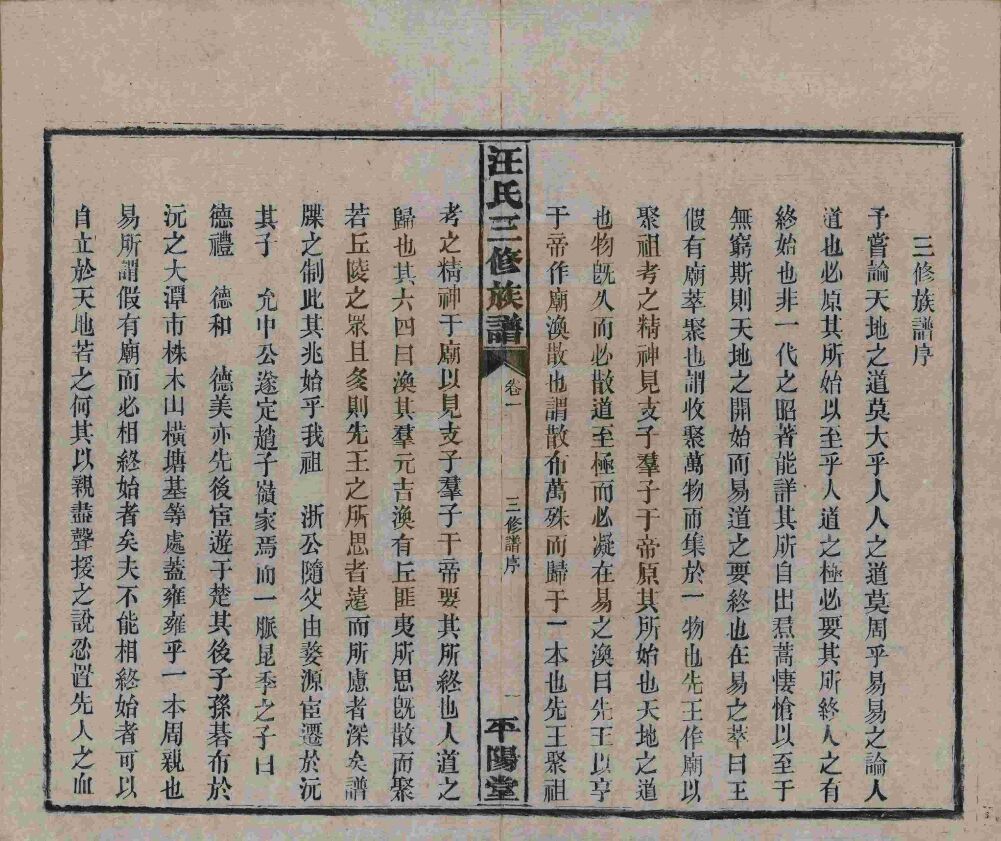 三修族譜序
予嘗論天地之道莫大乎人人之道莫周乎易易之論人
道也必原其所始以至乎人道之極必要其所終人之有
終始也非一代之昭著能詳其所自出焄蒿悽愴以至于
無窮斯則天地之開始而易道之要終也在易之萃曰王
假有廟萃聚也謂收聚萬物而集於一物也先王作廟以
聚祖考之精神見支子羣子于帝原其所始也天地之道
也物旣久而必散道至極而必凝在易之渙曰先王以享
于帝作廟渙散也謂散布萬殊而歸于一本也先王聚祖
汪氏三修族譜 卷一 三修譜序 一 平陽堂
考之精神于廟以見支子羣子于帝要其所終也人道之
歸也其六四曰渙其羣元吉渙有丘匪夷所思旣散而聚
若丘陵之眾且夐則先王之所思者遠而所慮者深矣譜
牒之制此其兆始乎我祖 浙公隨父由婺源宦遷於沅
其子 允中公遂定趙子嶺家焉而一脈昆季之子曰
德禮 德和 德美亦先後宦遊于楚其後子孫碁布於
沅之大潭市株木山橫塘基等處蓋雍雍乎一本周親也
易所謂假有廟而必相終始者矣夫不能相終始者可以
自立於天地若之何其以親盡聲援之說忍置先人之血